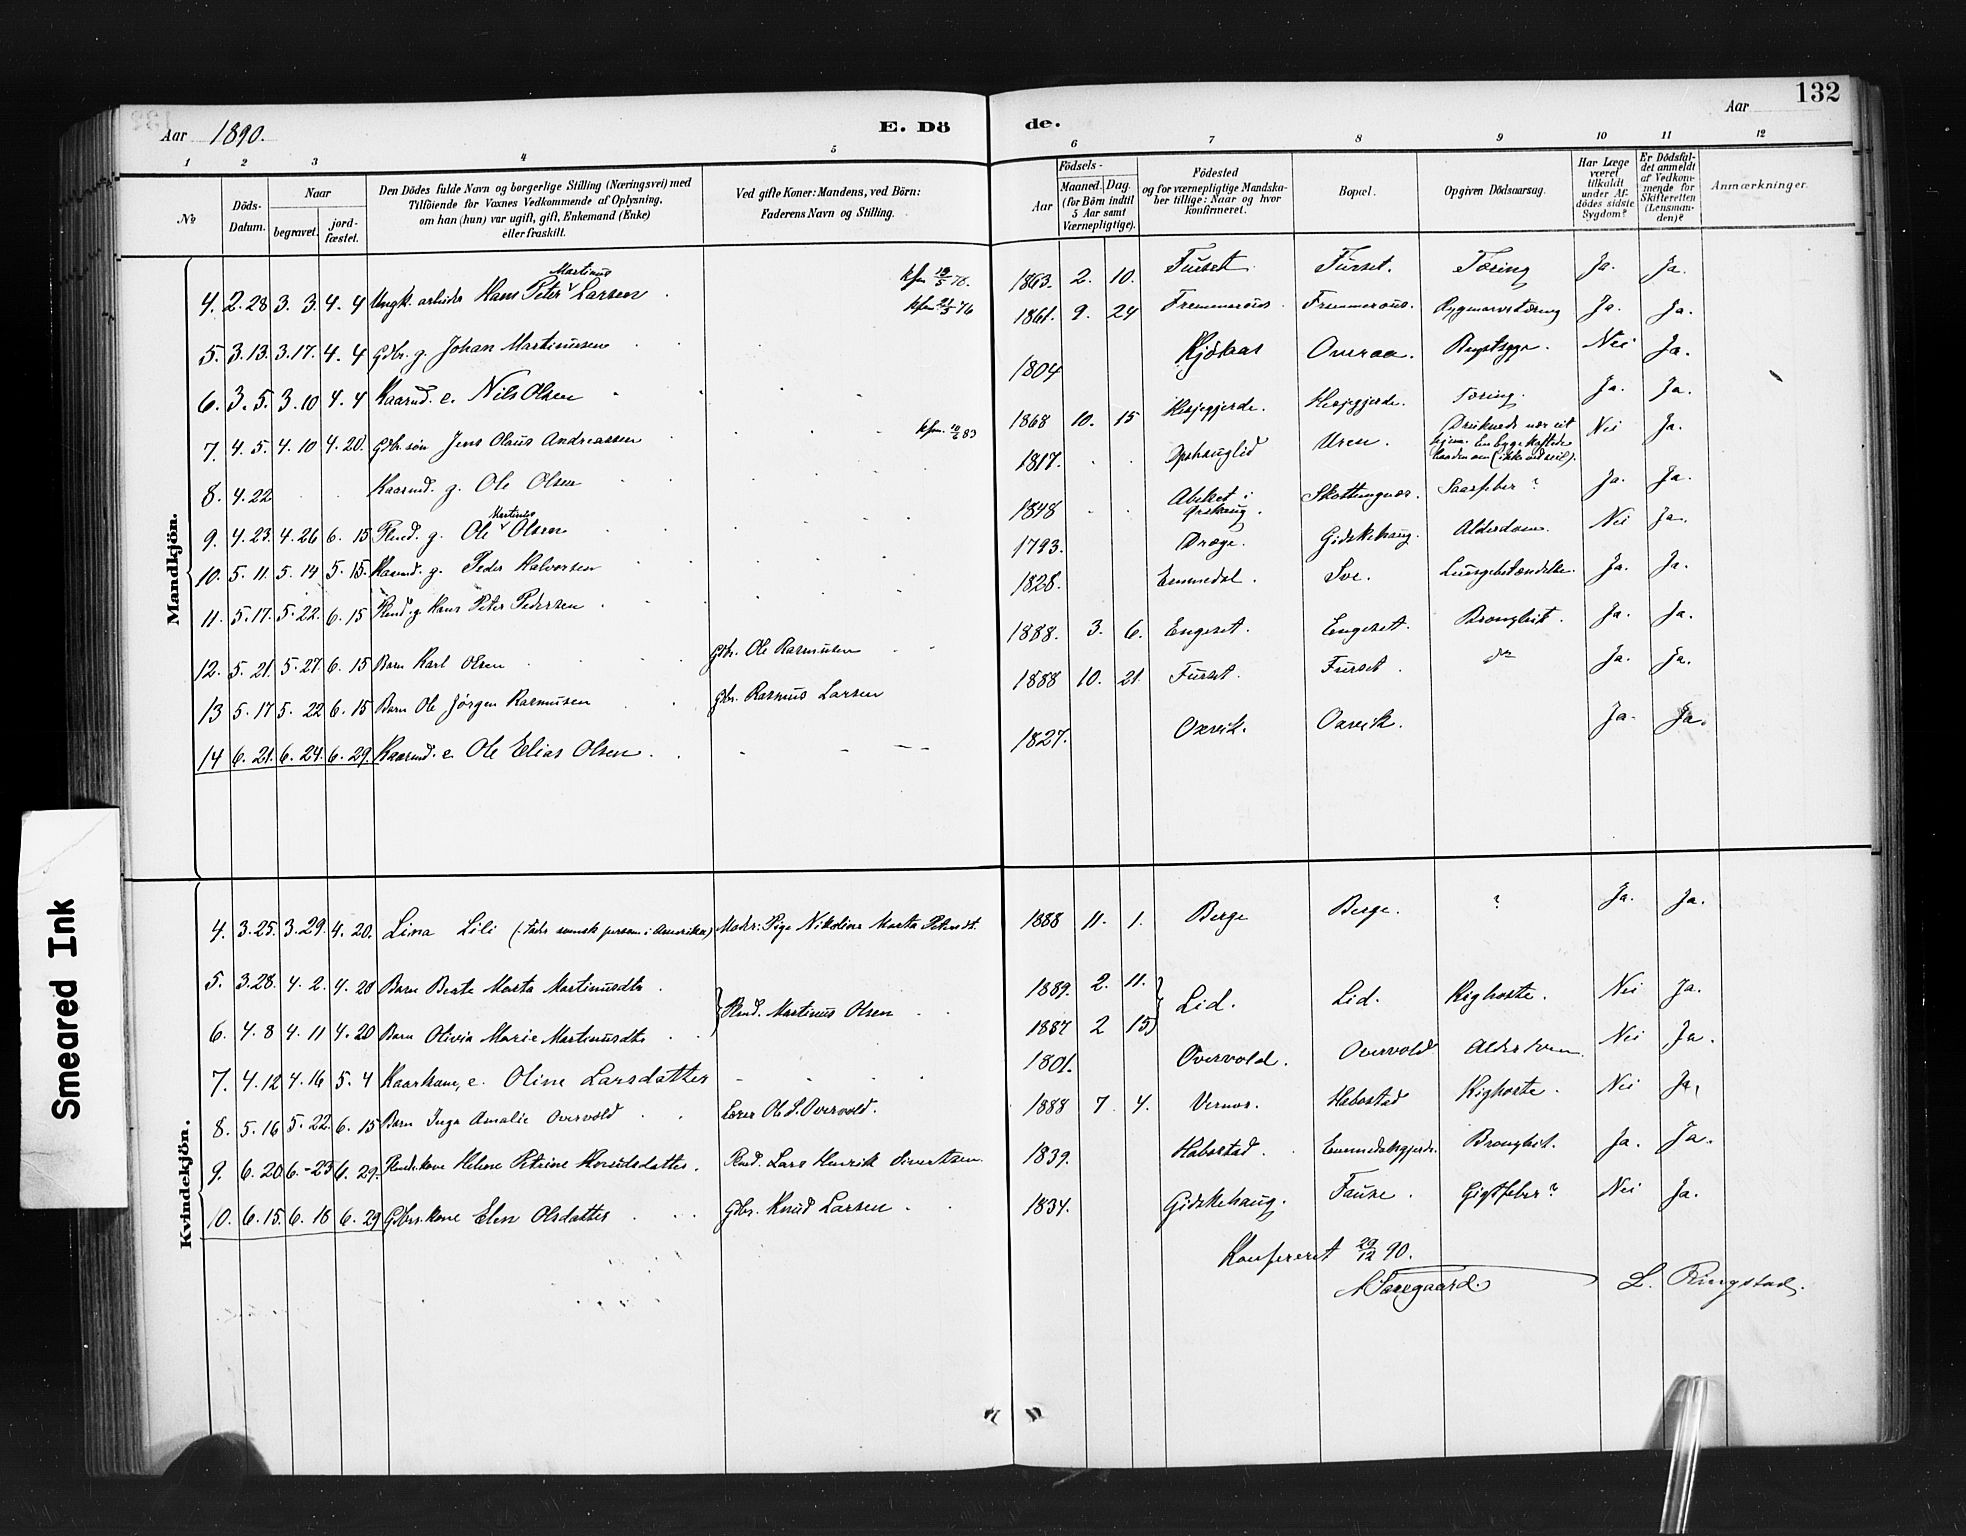 132
Aar 1890.
E. Döde.
Aar
1 2 3 4 5 6 7 8 9 10 11 12
№
Döds-Datum.
Naar
begravet.
jord-fæstet.
Den Dödes fulde Navn og borgerlige Stilling (Næringsvei) med
Tilföiende for Voxnes Vedkommende af Oplysning,
om han (hun) var ugift, gift, Enkemand (Enke)
eller fraskilt.
Ved gifte Koner: Mandens, ved Börn:
Faderens Navn og Stilling.
Födsels-
Aar
Maaned. Dag.
(for Börn indtil
5 Aar samt
Værnepligtige).
Födested
og for værnepligtige Mandska-
ber tillige: Naar og hvor
konfirmeret.
Bopæl.
Opgiven Dödsaarsag.
Har Læge
været
tilkaldt
under Af-
dödes sidste
Sygdom?
Er Dödsfal-
det anmeldt
af Vedkom-
mende for
Skifteretten
(Lensman-
den)?
Anmærkninger.
Mandkjön.
4. 2.28 3. 3 4. 4 Ungk. arbeider Hans Peter Martinus Larsen 1863. 2. 10. Furset Furset. Tæring Ja. Ja.
5. 3.13. 3.17. 4. 4 Gdbr. g. Johan Martinussen 1861. 9. 24 Fremmeraas Fremmeraas. Rygmarvstæring Ja. Ja.
6. 3. 5. 3. 10 4. 4 Kaarmd. e. Nils Olsen 1804 Kjökaas Overaa. Brystsyge. Nei Ja.
7. 4. 5. 4. 10 4. 20. Gdbr. sön Jens Olaus Andreassen 1868 10. 15 Hesjegjerde. Hesjegjerde. Tæring. Ja. Ja.
8. 4. 22 Kaarmd. g. Ole Olsen 1817. Opshauglid Uren. Druknede Nei Ja.
9. 4. 23. 4. 26 6. 15 Plmd. g. Ole Martinus Olsen 1848 Skottungnes. Saarfeber? Ja. Ja.
10. 5. 11. 5. 14 5. 15. Kaarmd. g. Peder Halvorsen 1793. Dræge. Gidskehaug. Alderdom. Nei Ja.
11. 5. 17. 5. 22. 6. 15 Plmd. g. Hans Peter Pedersen 1828. Emmedal. Sve. Lungebetændelse. Ja. Ja.
12. 5. 21. 5. 27. 6. 15 Barn Karl Olsen Gbr. Ole Rasmussen 1888. 3. 6. Engeset. Engeset. Bronghit. Ja. Ja.
13 5. 17 5. 22 6. 15 Barn Ole Jørgen Rasmussen Gbr. Rasmus Larsen 1888 10. 21 Furset. Furset. do Ja. Ja.
14 6. 21. 6. 24. 6. 29. Kaarmd. e. Ole Elias Olsen. 1827. Oxvik. Oxvik. Ja. Ja.
Kvindekjön.
4. 3.25. 3.29. 4. 20. Lina Lili (: Fader svensk person i Amerika) Moder: Pige Nikoline Marta Petersdt. 1888 11. 1. Berge Berge. ? Ja. Ja.
5. 3.28. 4. 2. 4. 20 Barn Berte Marta Martinusdtr. Plmd. Martinus Olsen 1889. 2. 11. Lid. Lid. Kighoste. Nei Ja.
6. 4. 8 4. 11 4. 20 Barn Olivia Marie Martinusdtr. 1887 2 15 Nei Ja.
7. 4. 12 4. 16 5. 4 Kaarkone, e. Oline Larsdatter 1801. Overvold. Overvold Alderdom. Nei Ja.
8. 5. 16 5. 22. 6. 15 Barn Inga Amalie Overvold Lærer Ole L. Overvold. 1888 7. 4. Vernes. Habostad Kighoste.
9. 6. 20 6.-23 6. 29. Plmdskone Helene Petrine Knudsdatter. Plmd. Lars Henrik Sivertsen 1839. Habostad. Emmedalsgjerde. Bronghit. Ja. Ja.
10. 6. 15. 6. 18 6. 29 Gdbrs. kone Elen Olsdatter Gbr. Knud Larsen 1834. Gidskehaug. Fause. Gigtfeber? Nei Ja.
Konfereret 29/12 90.
L. Ringstad.
Smeared Ink